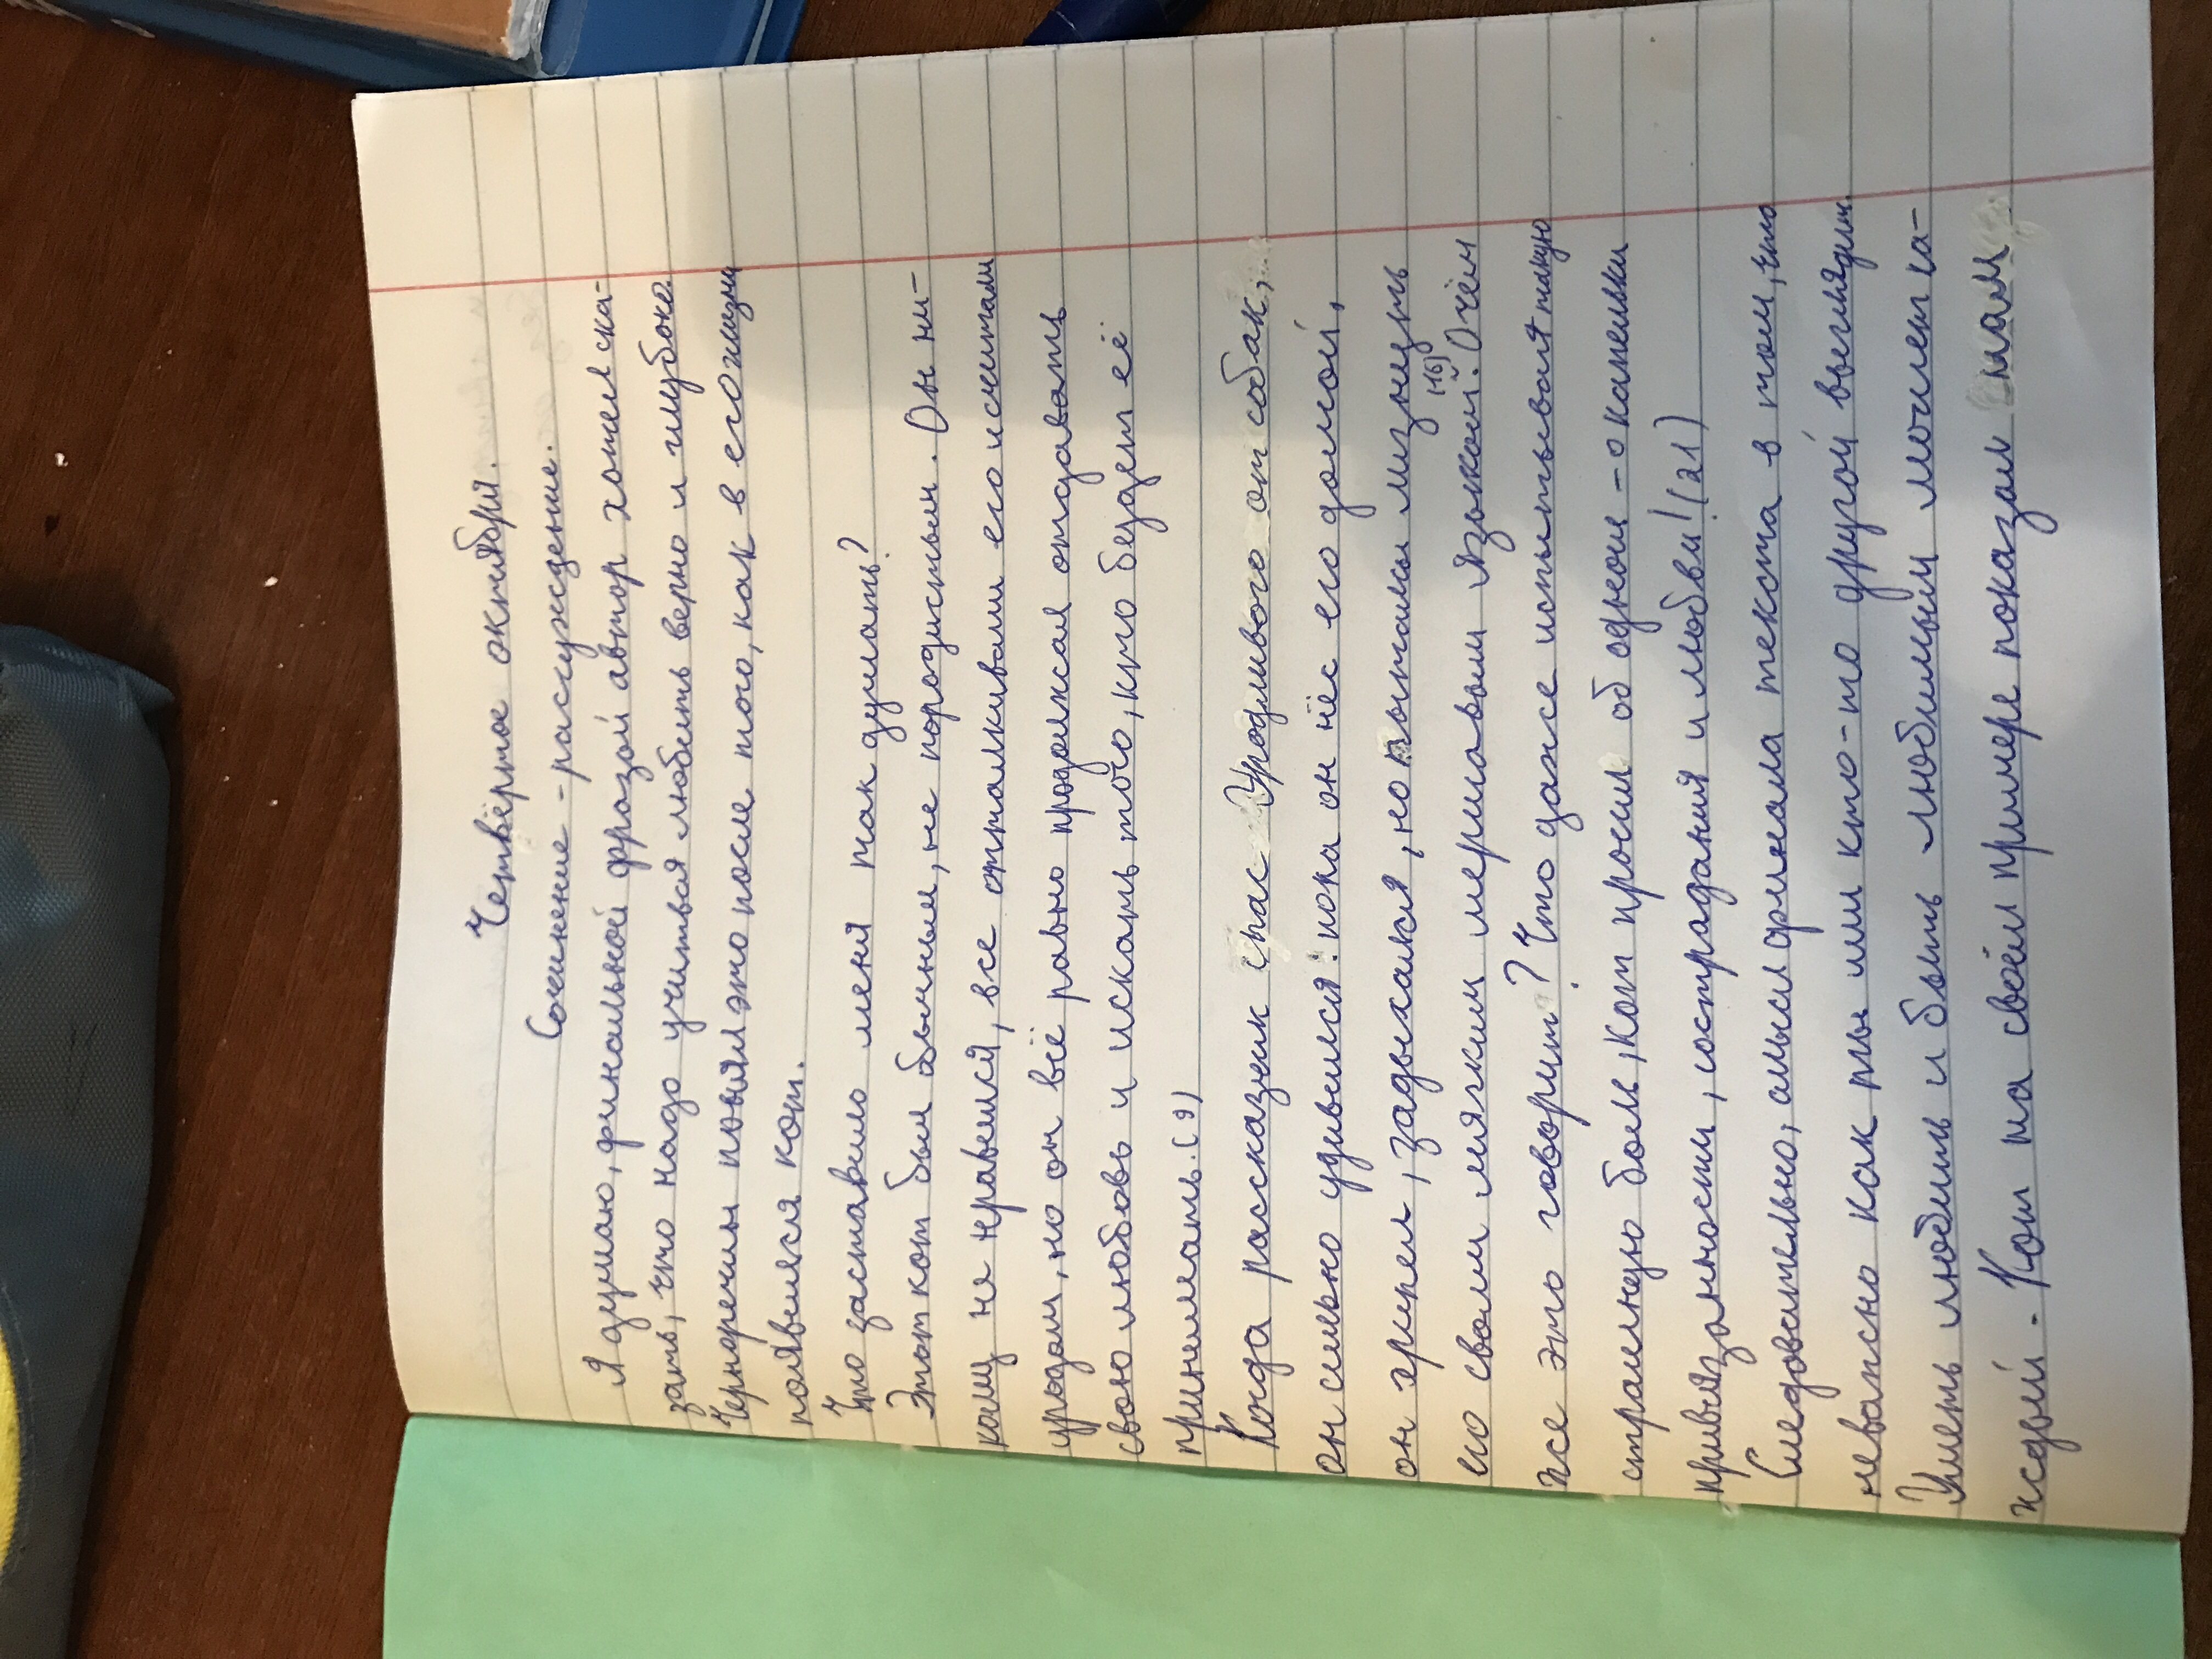 Четвёртое октября.
Сочинение-рассуждение.
Я думаю, финальной фразой автор хотел ска-
зать, что надо учиться любить верно и глубоко.
Черноречим понял это после того, как в его жизни
появился кот.
Что заставило меня так думать?
Этот кот был бычным, не породистым. Он ни-
кому не нравился, все отталкивали его и считали
уродом, но он всё равно продолжал отдавать
свою любовь и искать того, кто бедет её
принимать.(9)
Когда рассказчик спас Уродливого от собак,
он сильно удивился: пока он нёс его домой,
он хрипел, задыхался, но пытался лизнуть
его своим мягким мертавым языком.(16) О чём
же это говорит? Что даже испытывая такую
страшную боль, кот просил об одном - о капельки
привязанности, сострадания и любви!(21)
Следовательно, смысл финала текста в том, что
неважно как ты или кто-то другой выглядит.
Уметь любить и быть любимым может ка-
ждый. Кот на своём примере показал нам.